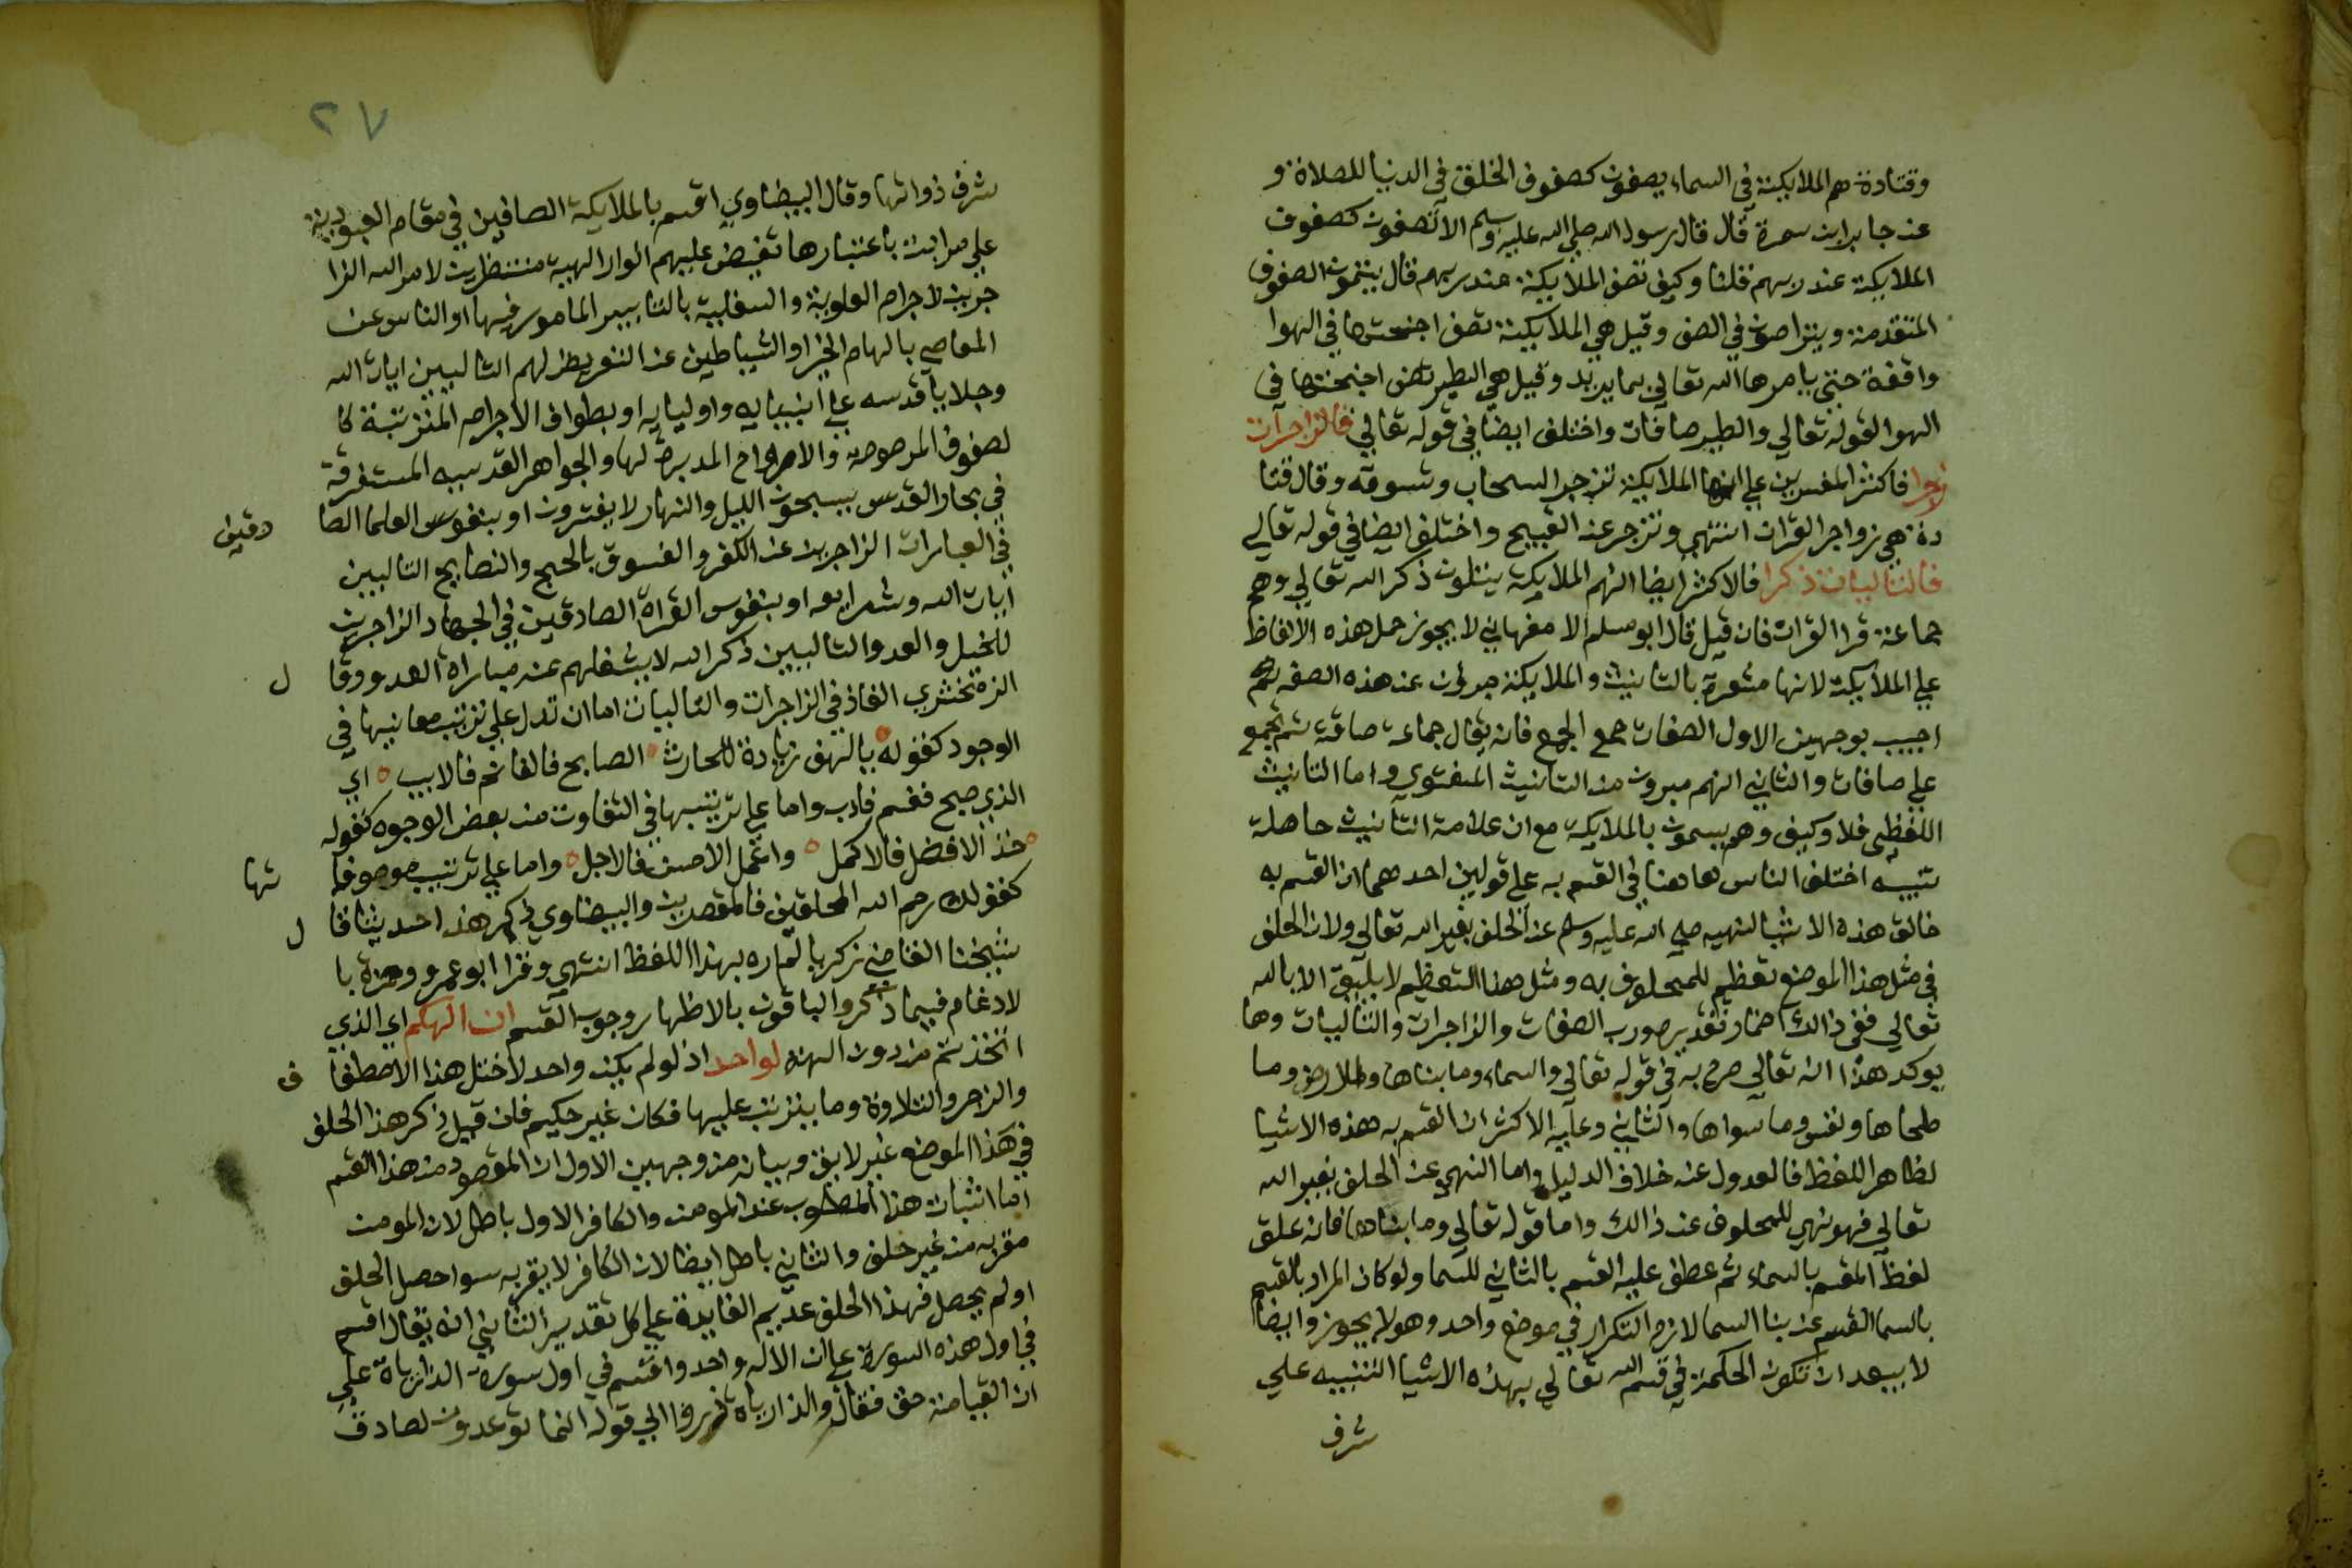 وقتادة هم الملايكة في السماء يصفون كصفوف الخلق في الدنيا للصلاة و
عن جابر ابن سمرة قال قال رسول الله صلى الله عليه وسلم الا تصفون كصفوف
الملايكة عند ربهم قلنا وكيف تصف الملايكة عند ربهم قال يتمون الصفوف
المتقدمة ويتراصون في الصف وقيل هي الملايكة تصف اجنحتها في الهوا
واقفة حتى يامرها الله تعالي بما يريد وقيل هي الطير تصف اجنحتها في
الهوا لقوله تعالي والطير صافات واختلف ايضا في قوله تعالي فالزاجرات
زجرا فاكثر المفسرين علي انها الملايكة تزجر السحاب وتسوقه وقال قتا
دة هي زواجر القران تنتهي وتزجر عن القبيح واختلف ايضا في قوله تعالي
فالتاليات ذكرا فالاكثر ايضا انهم الملايكة يتلون ذكر الله تعالي وهم
جماعة قرا القران فان قيل قال ابو مسلم الاصفهاني لا يجوز حمل هذه الالفاظ
علي الملايكة لانها مشعرة بالتانيث والملايكة مبرؤن عن هذه الصفة
اجيب بوجهين الاول الصفات جمع الجمع فانه يقال جماعة صافة ثم تجمع
علي صافات والثاني انهم مبرون من التانيث المعنوي واما التانيث
اللفظي فلا وكيف وهم يسمون بالملايكة مع ان علامة التانيث حاصلة
تنبيه اختلف الناس هاهنا في القسم به علي قولين احدهما ان القسم به
خالق هذه الاشيا لنهيه صلى الله عليه وسلم عن الحلف بغير الله تعالي ولان الحلف
في مثل هذا الموضع تعظيم للمحلوف به ومثل هذا التعظيم لا يليق الا بالله
تعالي ففي ذالك اضمار تقديره ورب الصفات والزاجرات والتاليات ومما
يوكد هذا انه تعالي صرح به في قوله تعالي والسماء وما بناها والارض وما
طحاها ونفس وما سواها والثاني وعليه الاكثر ان القسم به هذه الاشيا
لظاهر اللفظ فالعدول عنه خلاف الدليل واما النهي عن الحلف بغير الله
تعالي فهو نهي للمحلوف عن ذالك واما قوله تعالي وما بناها فانه علق
لفظ القسم بالسماء ثم عطف عليه القسم بالثاني للسما ولو كان المراد بالقسم
بالسما القسم عن بنا السما لازم التكرار في موضع واحد وهو لا يجوز وايضا
لا يبعد ان تكون الحكمة في قسم الله تعالي بهذه الاشيا التنبيه علي
شرف
٢٧
شرف ذواتها وقال البيضاوي اقسم بالملايكة الصافين في مقام العبودية
علي مراتب باعتبارها تفيض عليهم انوار الهية منتظرين لامر الله الزا
جرين لاجرام العلوية والسفلية بالتدبير المامور فيها او الناس عن
المعاصي بالهام الخير او الشياطين عن التعرض لهم التاليين ايات الله
وجلايا قدسه علي انبيايه واوليايه او بطوايف الاجرام المترتبة كا
لصفوف المرصوصة والارواح المدبرة لها والجواهر القدسيه المستغرقة
في بحار القدس يسبحون الليل والنهار لا يفترون او بنفوس العلما الصا
في العبارات الزاجرين عن الكفر والفسوق بالحجج والنصايح التاليين
ايات الله وشرايعه او بنفوس الغزاة الصادقين في الجهاد الزاجرين
للخيل والعدو التاليين ذكر الله لا يشغلهم عنه مباراة العدو وقا ل
الزمخشري الفاء في الزاجرات والتاليات اما ان تدل علي ترتيب معانيها في
الوجود كقوله يا لهف زيادة للحارث الصابح فالغانم فالايب اي
الذي صبح فغنم فاب واما علي ترتيبها في التفاوت من بعض الوجوه كقوله
خذ الافضل فالاكمل واعمل الاحسن فالاجمل واما علي ترتيب موصوفا تها
كقولك رحم الله المحلقين فالمقصرين والبيضاوي ذكر هذا حديثا قا ل
شيخنا القاضي زكريا لم اره بهذا اللفظ انتهي وقرا ابو عمرو وحمزة با
لادغام فيما ذكر والباقون بالاظهار وجوب القسم ان الهكم اي الذي
اتخذتم من دون الهة لواحد اذ لو لم يكن واحد لاختل هذا الاصطفا ف
والزجر والتلاوة وما يترتب عليها فكان غير حكيم فان قيل ذكر هذا الحلف
في هذا الموضع غير لايق وبيانه من وجهين الاول ان المقصود من هذا القسم
اما اثبات هذا المطلوب عند المومن والكافر الاول باطل لان المومن
مقر به من غير حلف والثاني باطل ايضا لان الكافر لا يقر به سوا حصل الحلف
او لم يحصل فهذا الحلف عديم الفايدة علي كل تقدير الثاني انه يقال اقسم
في اول هذه السورة علي ان الاله واحد واقسم في اول سورة الذاريات علي
ان القيامة حق فقال والذاريات ذروا الي قوله انما توعدون لصادق